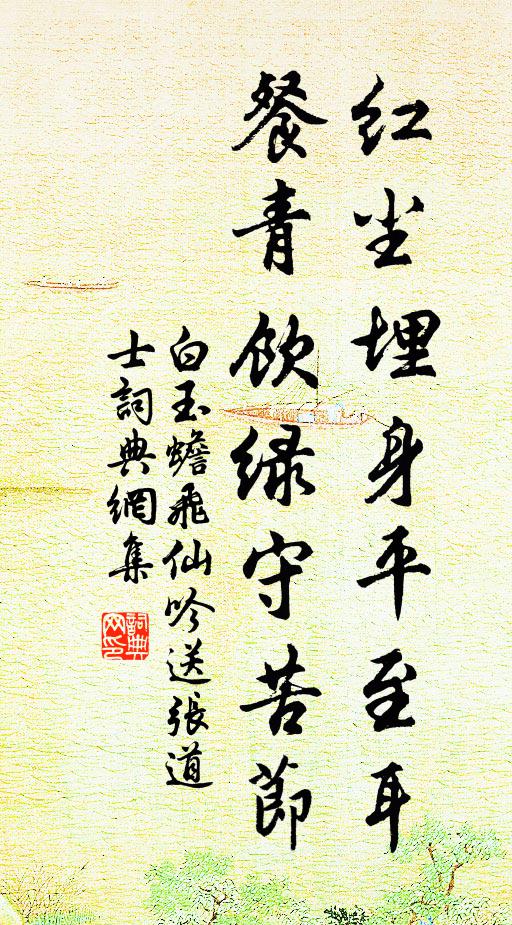 红尘埋身平至耳
餐青飲绿守苦節
白玉蟾飛仙吟送張道
士詞典網集
詞典
网印